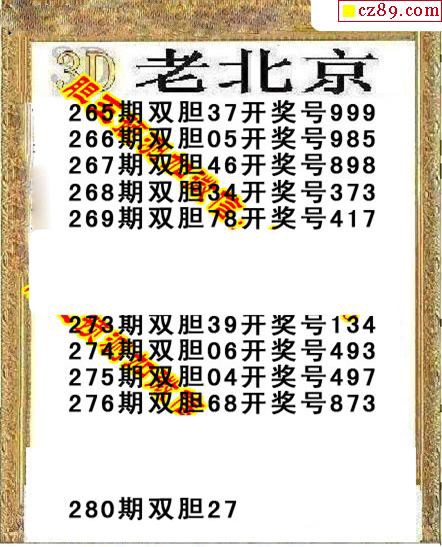 cz89.com
3D 老北京
265期双胆37开奖号999
266期双胆05开奖号985
267期双胆46开奖号898
268期双胆34开奖号373
269期双胆78开奖号417
273期双胆39开奖号134
274期双胆06开奖号493
275期双胆04开奖号497
276期双胆68开奖号873
280期双胆27